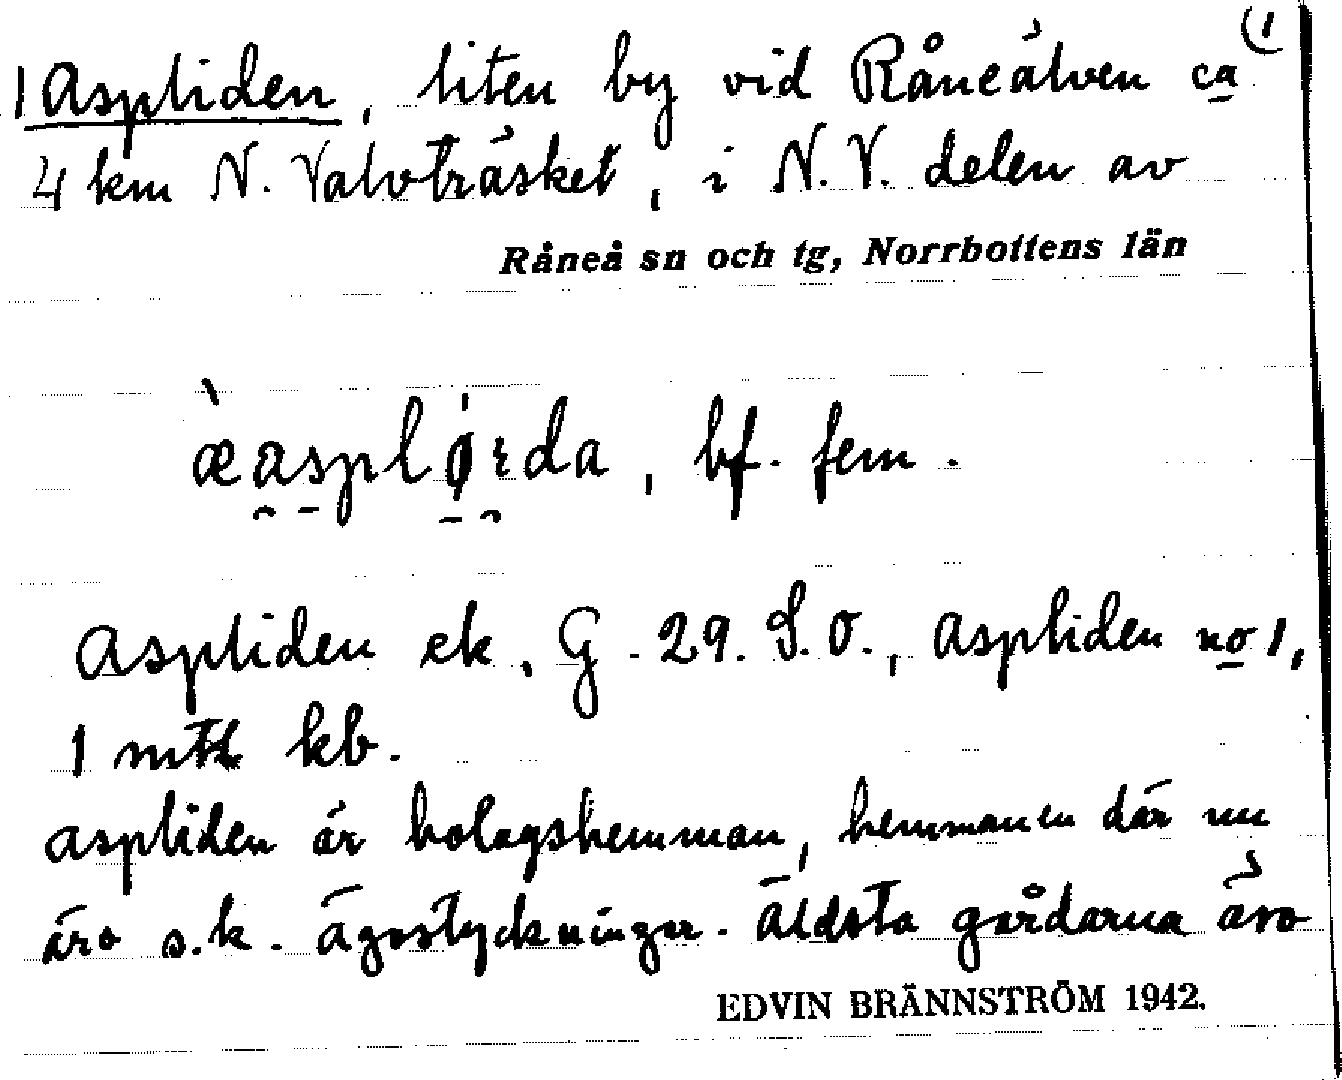 (1
1 Aspliden, liten by vid Råneälven ca
4 km N. Valvträsket, i N.V. delen av
Råneå sn och tg, Norrbottens län
æasplørda, bf. fem.
Aspliden ek, G. 29. S.O., Aspliden no 1,
1 mtl kb.
Aspliden är bolagshemman, hemmanen där nu
äro s.k. ägostyckningar. Äldsta gårdarna äro
EDVIN BRÄNNSTRÖM 1942.